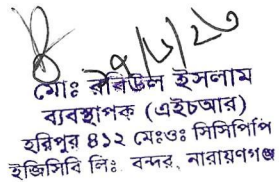 ২৭/৮/২৩
মোঃ রবিউল ইসলাম
ব্যবস্থাপক (এইচআর)
হরিপুর ৪১২ মেঃওঃ সিসিপিপি
ইজিসিবি লিঃ বন্দর, নারায়ণগঞ্জ